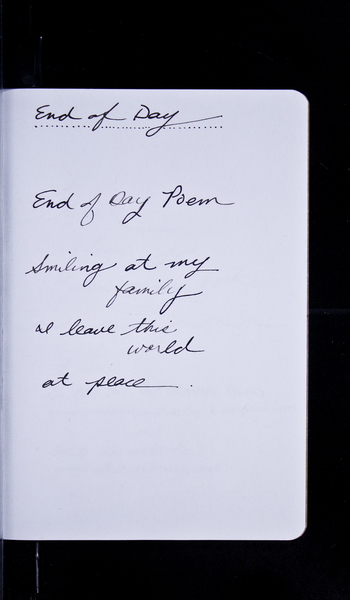 End of Day
End of Day Poem
Smiling at my
family
I leave this
world
at peace.